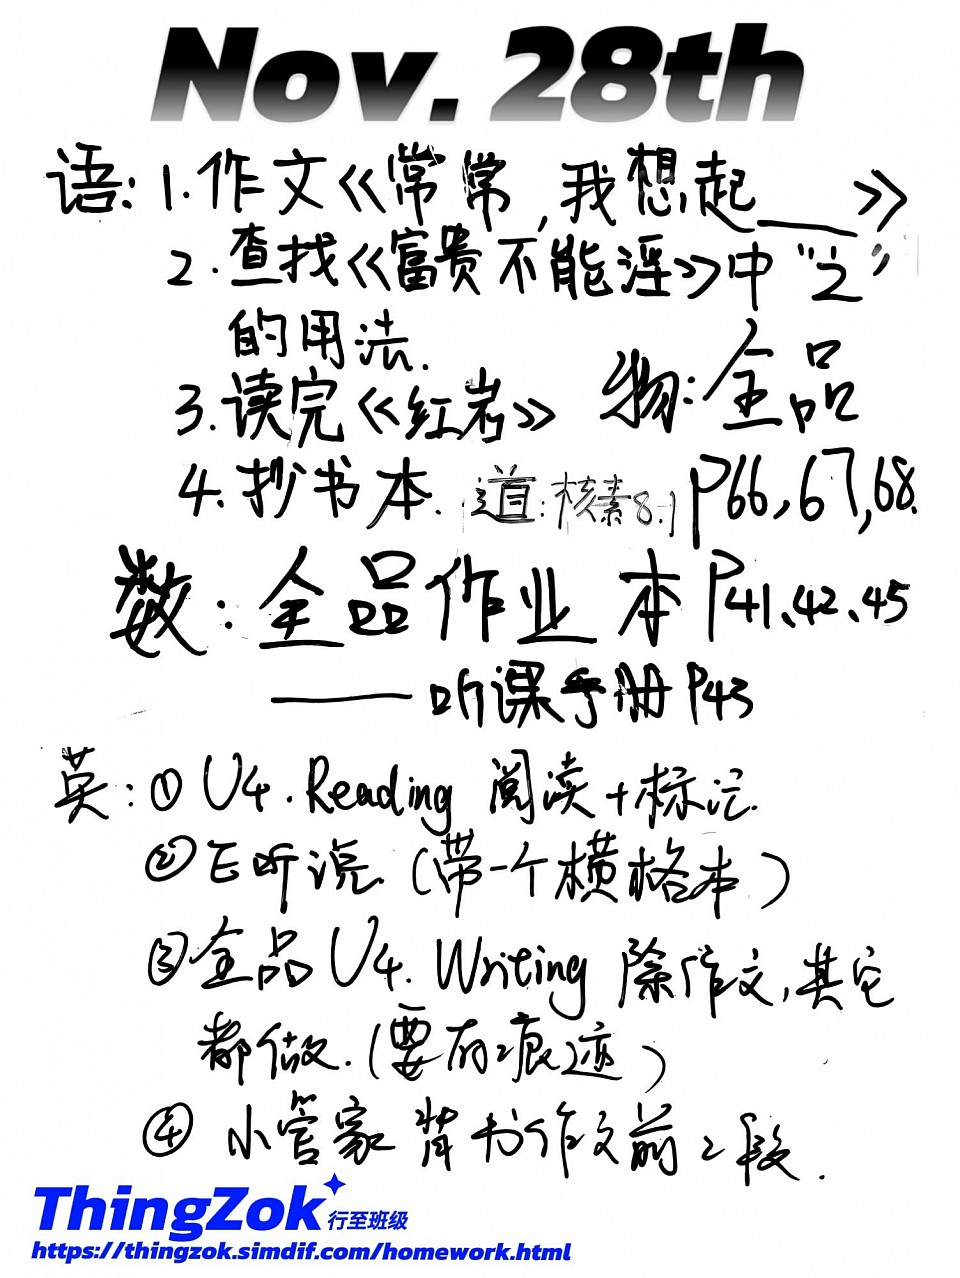 Nov. 28th
语: 1. 作文《常常,我想起___》
2. 查找《富贵不能淫》中“之”
的用法.
3. 读完《红岩》
4. 抄书本.
道: 核素8.1
物: 全品
P66, 67, 68.
数: 全品作业本 P41、42、45
——听课手册 P43
英: ① U4. Reading 阅读+标记.
② E听说. (带一个横格本)
③ 全品 U4. Writing 除作文, 其它
都做. (要有痕迹)
④ 小管家 背书作文前2段.
ThingZok 行至班级
https://thingzok.simdif.com/homework.html